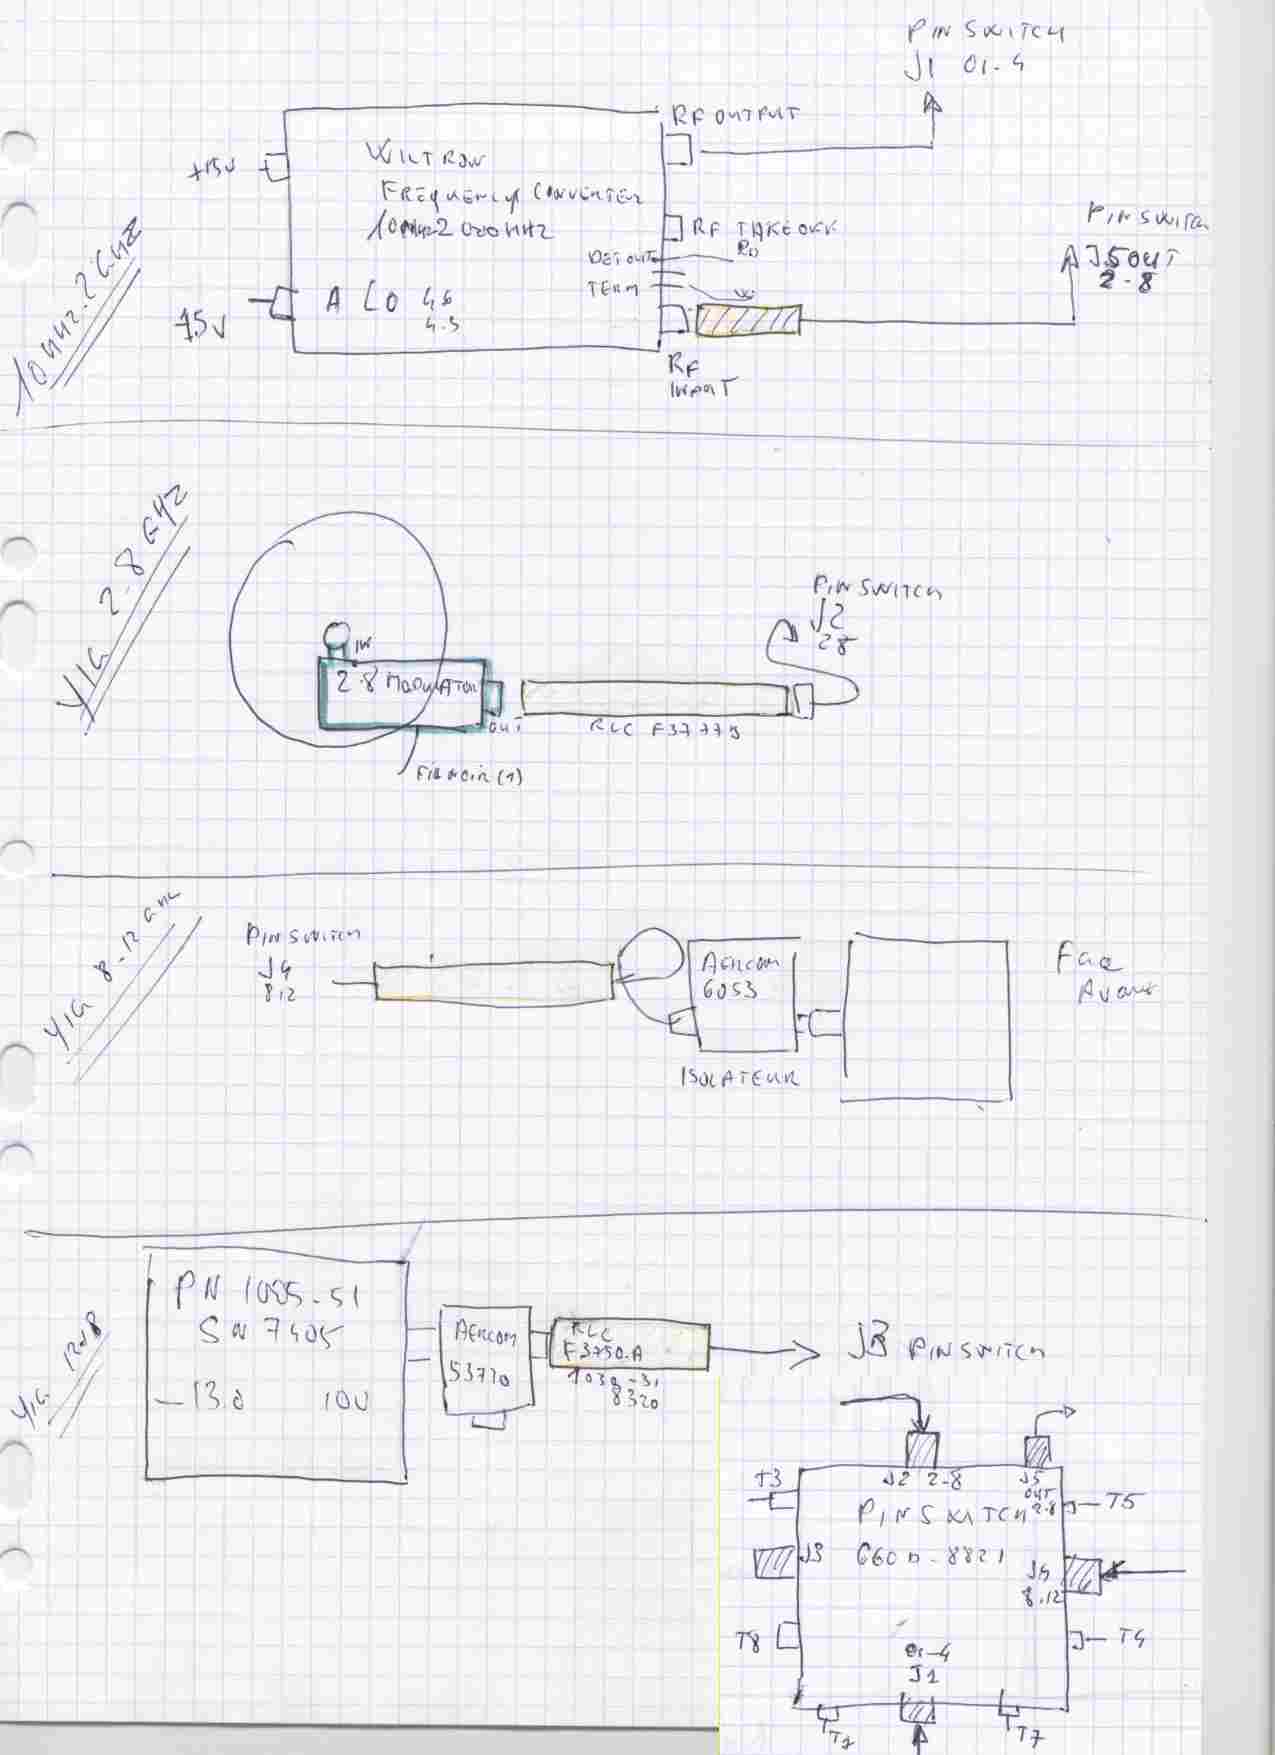 PIN SWITCH
J1 01-4
RF OUTPUT
+15V
WILTRON
FREQUENCY CONVERTER
10MHZ-2000MHZ
RF TAKEOFF
DET OUT
TERM
A LO 4.6
4.5
15V
RF
INPUT
PIN SWITCH
J5 OUT
2-8
10MHZ-2GHZ
YIG 2-8 GHZ
IN
2-8 MODULATOR
OUT
Fil NOIR (1)
RLC F3777S
PIN SWITCH
J2
28
YIG 8-12 GHZ
PIN SWITCH
J4
8.12
AERCOM
6053
ISOLATEUR
Face
Avant
YIG 12-18
PN 1005-51
SN 7405
-13.0 10V
AERCOM
53720
RLC
F3750-A
1030-31
8320
J3 PIN SWITCH
T3
J2 2-8
J5
OUT
2-8
T5
PIN SWITCH
660D-8821
J3
J4
8.12
T8
T4
01-4
J1
T7